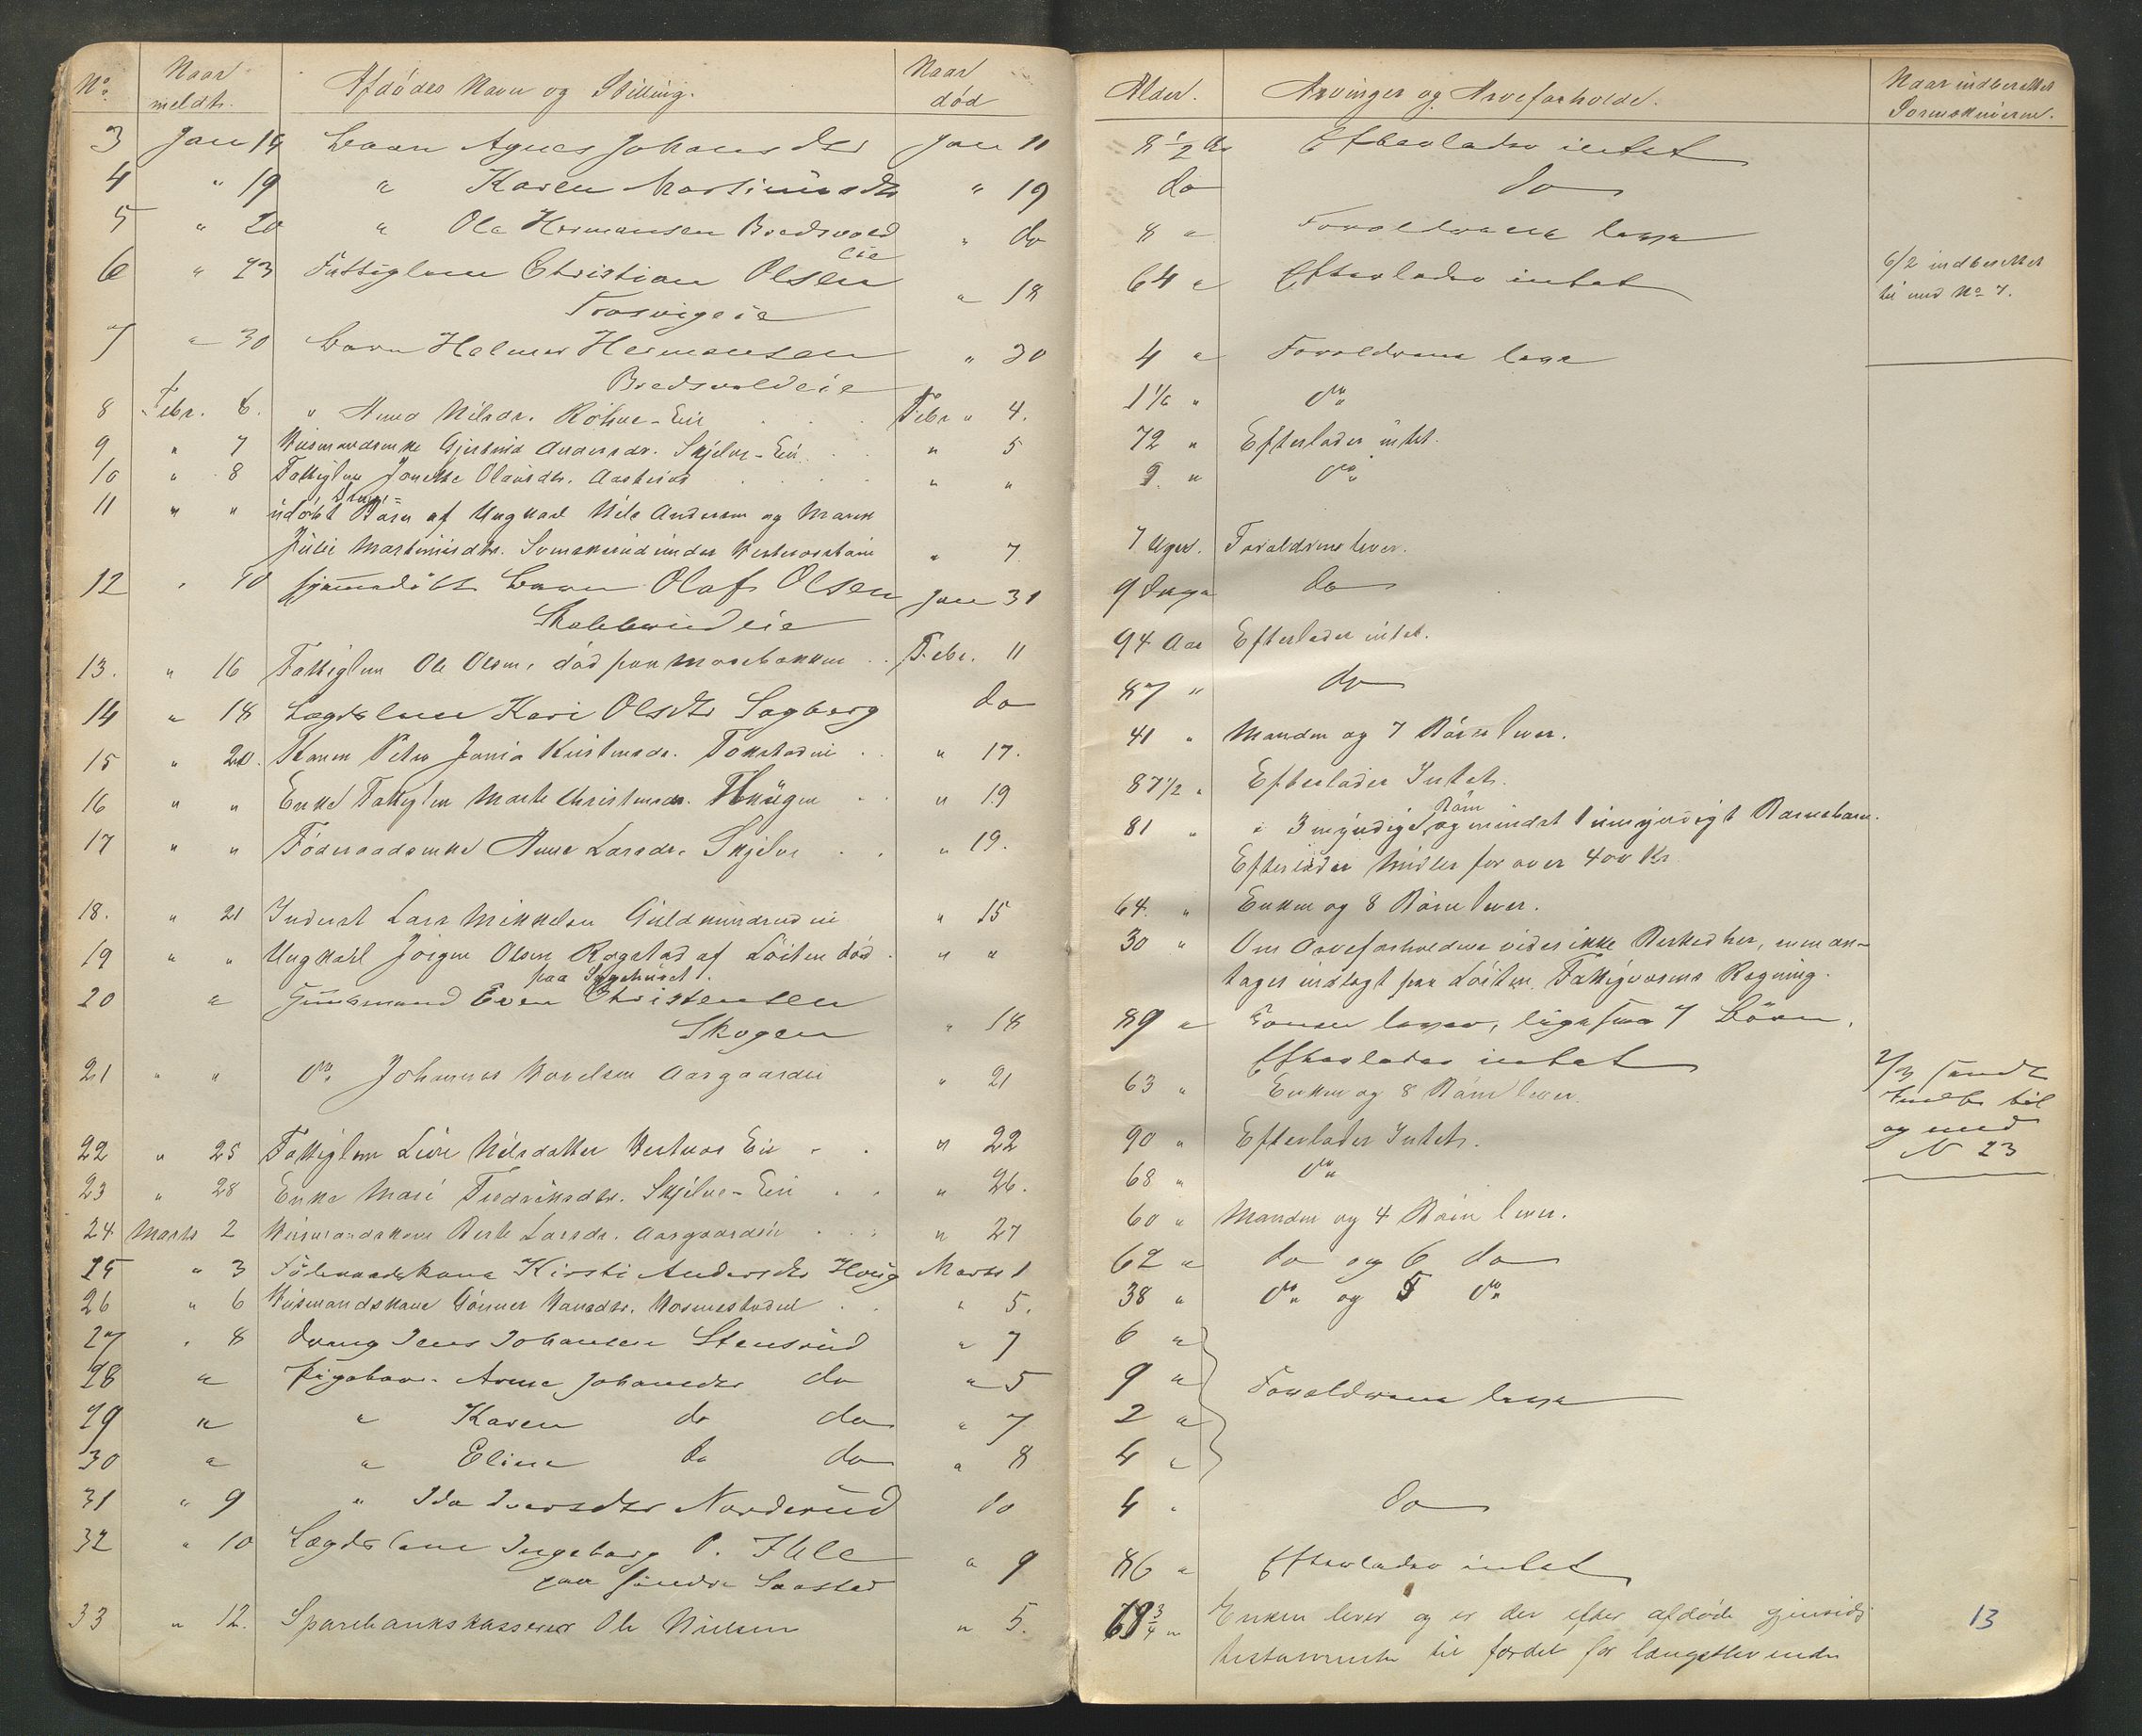 No. Naar meldt. Afdödes Navn og Stilling. Naar död
3 Jan 14 Barn Agnes Johansdtr Jan 11
4 " 19 " Karen Martinusdtr " 19
5 " 20 " Ole Hermansen Bredsvold " do
eie
6 " 23 Fattiglem Christian Olsen
Frosvigeie " 18
7 " 30 Barn Helmer Hermansen " 30
Bredsvoldeie
8 Febr. 6. " Anna Nilsdr. - Eie Febr " 4.
9 " 7 Husmandsenke Gjertrud Andersdr. Skjelve-Eie " 5
10 " 8 Fattiglem Olausdtr. " "
11 " " udöbt Barn af Ungkarl Nils Andersen og Maren
Julie Martinusdtr. under " 7
12 " 10 hjemmedöbt Barn Olaf Olsen Jan 31
eie
13. " 16 Fattiglem Ole Olsen, död paa Mosebakken Febr. 11
14 " 18 Lægdslem Kari Olsdtr Sagberg do
15 " 20. Konen Petra Kristensdr. " 17.
16 " " Enke Fattiglem Marte Christensdr. " 19
17 " " Föderaadsenke Anne Larsdr. Skjelve " 19.
18. " 21 Inderst Lars Mikkelsen eie " 15
19 " " Ungkarl Jörgen Olsen Rogstad af Löiten död " "
paa Sygehuset.
20 " Even Christensen
Skogen " 18
21 " " Do. Johannes Aasgaardeie " 21
22 " 25 Fattiglem Nilsdatter Eie " 22
23 " 28 Enke Mari Fredriksdtr. Skjelve-Eie " 26.
24 Marts 2 Husmandskone Berte Larsdr. Aasgaardeie " 27
25 " 3 Föderaadskone Kirsti Andersdtr Marts 1
26 " 6 Husmandskone Gunner Hansdtr. " 5.
27 " 8 Dreng Jens Johansen Stensrud " 7
28 " Pigebarn Anne Johansdtr do " 5
29 " " Karen do do " 7
30 " " Eline do do " 8
31 " 9 " Ida Iversdtr Norderud do
32 " 10 Lægdslem Ingeborg O. Ihle
paa söndre Saastad " 9
33 " 12. Sparebankskasserer Ole Nielsen " 5.
Alder. Arvinger og Arveforholde. Naar indberettet Sorenskriveren.
8 1/2 Ar Efterlader intet
do do
8 " Foreldrene leve
64 " Efterlader intet 6/2 indberettet
til med No 7.
4 " Foreldrene leve
1 1/6 " Do
72 " Efterlader intet.
9. " Do
7 Uger. Forældrene lever.
9 Dage do
94 Aar Efterlader intet.
87 " do
41 " Manden og 7 Börn lever.
87 1/2 " Efterlader Intet.
Börn
81 " 3 myndige, og mindst 1 umyndigt Barnebarn.
Efterlader Midler for over 400 Kr
64. " Enken og 8 Börn lever.
30 " Om Arveforholdene vides ikke Besked her, men an-
tages indlagt paa Löiten Fattigvæsens Regning.
89 " Konen lever, ligesaa 7 Börn.
Efterlader intet
63 " Enken og 8 Börn lever. 2/3 sendt
Indb. til
og med
N 23
90 " Efterlader Intet.
68 " Do
60 " Manden og 4 Börn lever.
62 " do og 6 do
38 " Do og 5 Do
6 "
9 " Foreldrene leve
2 "
4 "
4 " do
86 " Efterlader intet
3/4 " Enken lever og er der efter afdöde gjensidig 13
testamente til fordel for længstlevende